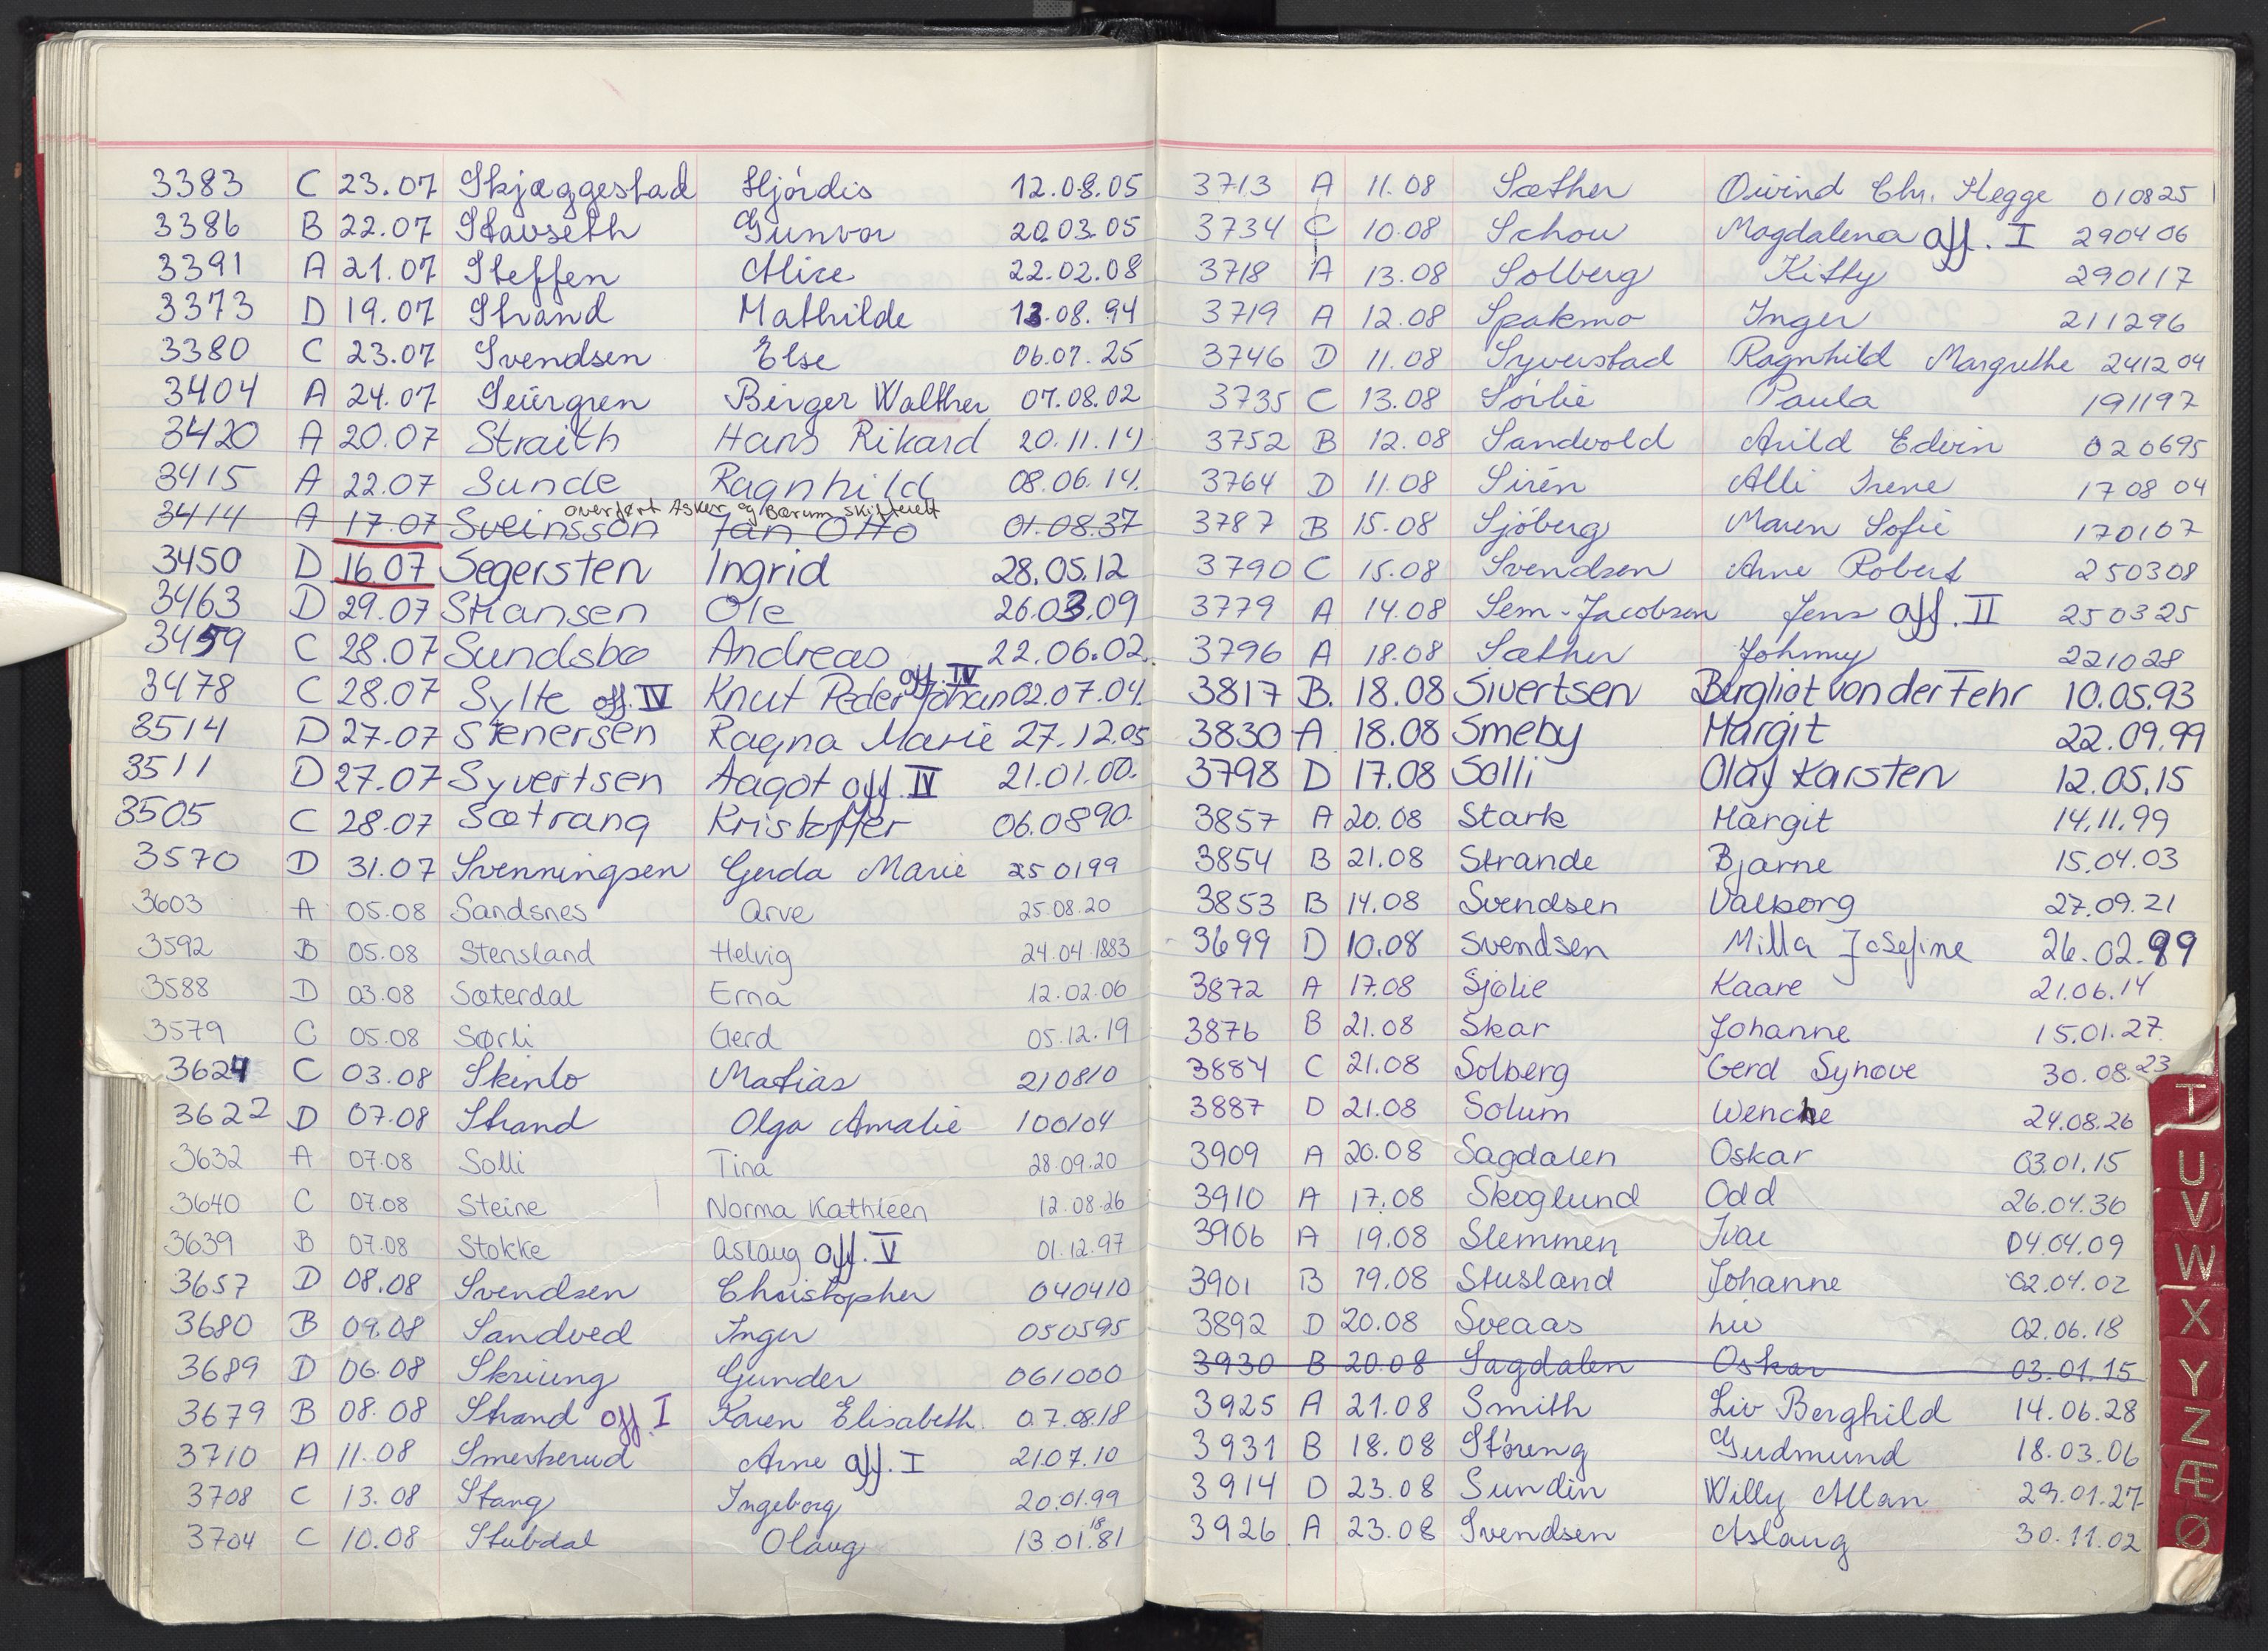 3383 C 23.07 Skjæggestad Hjördis 12.08.05
3386 B 22.07 Stavseth Gunvor 20.03.05
3391 A 21.07 Steffen Alice 22.02.08
3373 D 19.07 Strand Mathilde 13.08.94
3380 C 23.07 Svendsen Else 06.07.25
3404 A 24.07 Birger Walther 07.08.02
3420 A 20.07 Straith Hans Rikard 20.11.14
3415 A 22.07 Sunde Ragnhild 08.06.14.
overført Asker og Bærum skifterett
3414 A 17.07 Sveinsson Jan Otto 01.08.37
3450 D 16.07 Segersten Ingrid 28.05.12
3463 D 29.07 Stiansen Ole 26.03.09
3459 C 28.07 Sundsbø Andreas 22.06.02.
3478 C 28.07 Sylte off. IV Knut Peder Johan off. IV 02.07.04.
3514 D 27.07 Stenersen Ragna Marie 27.12.05
3511 D 27.07 Syvertsen Aagot off. IV 21.01.00.
3505 C 28.07 Sætrang Kristoffer 06.0890.
3570 D 31.07 Svenningsen Gerda Marie 250199
3603 A 05.08 Sandsnes Arve 25.08.20
3592 B 05.08 Stensland Helvig 24.04.1883
3588 D 03.08 Sæterdal Erna 12.02.06
3579 C 05.08 Sørli Gerd 05.12.19
3624 C 03.08 Skinlo Matias 210810
3622 D 07.08 Strand Olga Amalie 100104
3632 A 07.08 Solli Tina 28.09.20
3640 C 07.08 Steine Norma Kathleen 12.08.26
3639 B 07.08 Stokke Aslaug off. V 01.12.97
3657 D 08.08 Svendsen Christopher 040410
3680 B 09.08 Sandved Inger 050595
3689 D 06.08 Skriung Gunder 061000
3679 B 08.08 Strand off. I Karen Elisabeth 07.08.18
3710 A 11.08 Smerkerud Arne off. I 21.07.10
3708 C 13.08 Stang Ingeborg 20.01.99
3704 C 10.08 Stubdal Olaug 13.01.1881
3713 A 11.08 Sæther Øivind Chr. Hegge 010825
3734 C 10.08 Schou Magdalena off. I 290406
3718 A 13.08 Solberg Kitty 290117
3719 A 12.08 Spakmo Inger 211296
3746 D 11.08 Syverstad Ragnhild Margrethe 241204
3735 C 13.08 Sörlie Paula 191197
3752 B 12.08 Sandvold Arild Edvin 020695
3764 D 11.08 Sirén Alli Irene 170804
3787 B 15.08 Sjöberg Maren Sofie 170107
3790 C 15.08 Svendsen Arne Robert 250308
3779 A 14.08 Sem-Jacobsen Jens off. II 250325
3796 A 18.08 Sæther Johnny 221028
3817 B. 18.08 Sivertsen Bergliot von der Fehr 10.05.93
3830 A 18.08 Smeby Margit 22.09.99
3798 D 17.08 Solli Olaf Karsten 12.05.15
3857 A 20.08 Stark Margit 14.11.99
3854 B 21.08 Strande Bjarne 15.04.03
3853 B 14.08 Svendsen Valborg 27.09.21
3699 D 10.08 Svendsen Milla Josefine 26.02.99
3872 A 17.08 Sjølie Kaare 21.06.14
3876 B 21.08 Skar Johanne 15.01.27.
3884 C 21.08 Solberg Gerd Synøve 30.08.23
3887 D 21.08 Solum Wenche 24.08.26
3909 A 20.08 Sagdalen Oskar 03.01.15
3910 A 17.08 Skoglund Odd 26.04.36
3906 A 19.08 Slemmen Ivar 04.04.09
3901 B 19.08 Stusland Johanne 02.04.02
3892 D 20.08 Sveaas Liv 02.06.18
3930 B 20.08 Sagdalen Oskar 03.01.15
3925 A 21.08 Smith Liv Berghild 14.06.28
3931 B 18.08 Störeng Gudmund 18.03.06
3914 D 23.08 Sundin Willy Allan 29.01.27
3926 A 23.08 Svendsen Aslaug 30.11.02
T
U
V
W
X
Y
Z
Æ
Ø